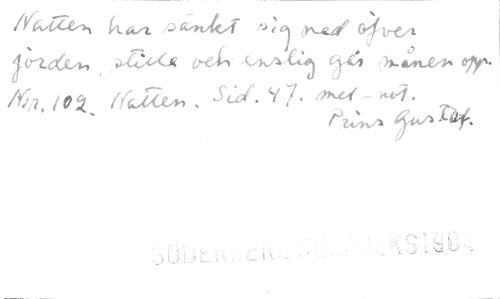 Natten har sänkt sig ned öfver
jorden, stilla och enslig går månen opp.
Nr. 102. Natten. Sid. 47. mel-not.
Prins Gustaf.
SÖDERBERG